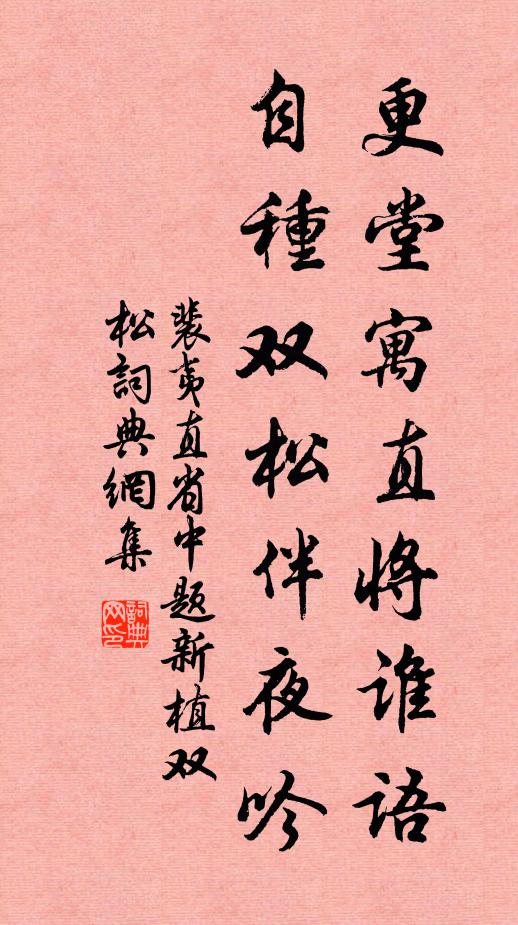 更堂寓直将谁语
自種双松伴夜吟
裴夷直省中题新植双
松詞典網集
詞典网印